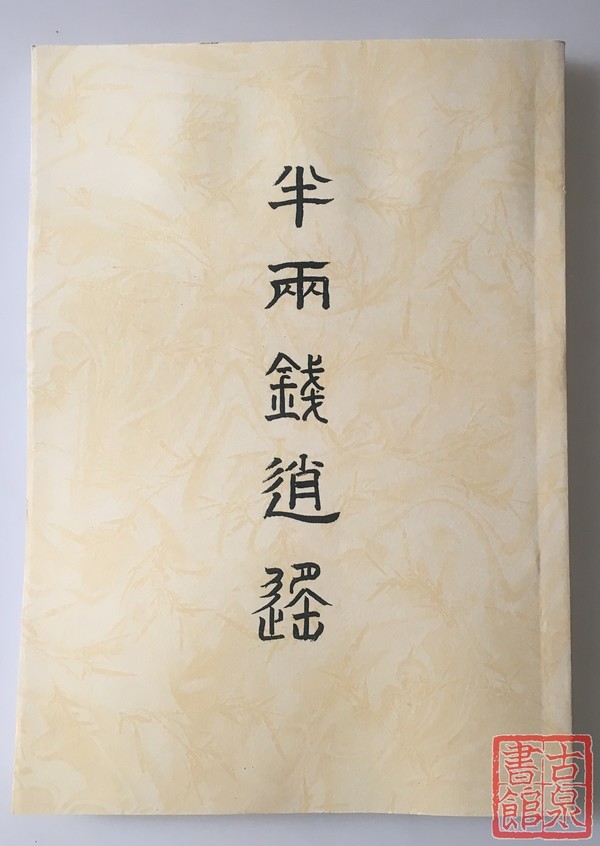 半兩錢逍遙
古泉
書館